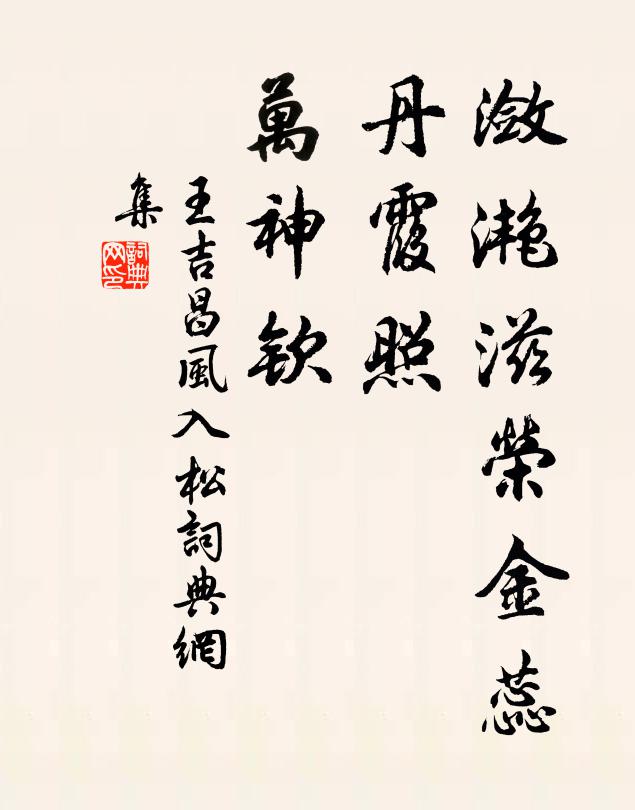 瀲灧滋榮金蕊
丹霞照
萬神欽
王吉昌風入松詞典網
集
詞典
网印